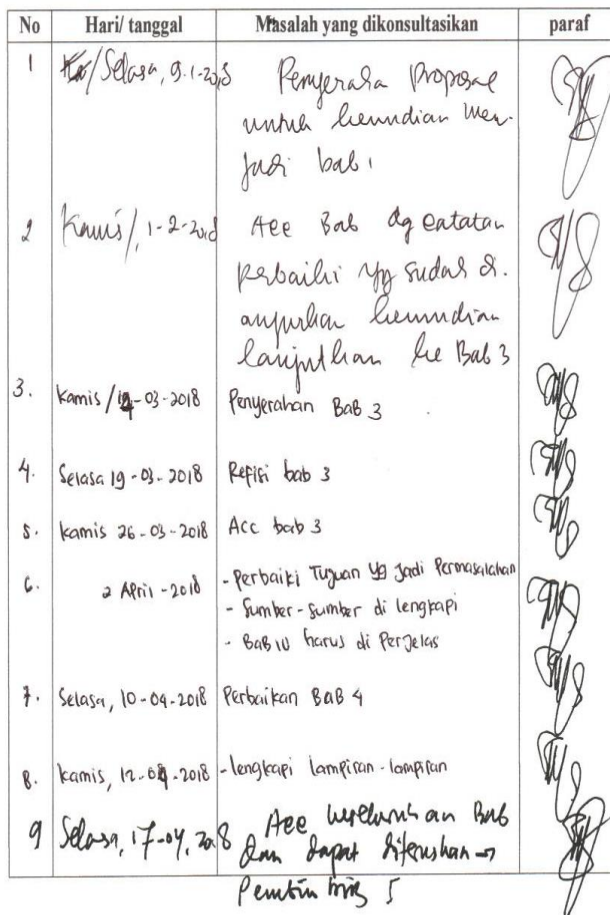 No Hari/ tanggal Masalah yang dikonsultasikan paraf
1 Selasa, 9.1-2018 Penyeraha Proposal
untuk kemudian men-
jadi bab 1
2 Kamis/, 1-2-2018 Acc Bab dg catatan
perbaiki yg sudah di.
anjurkan kemudian
lanjutkan ke Bab 3
3. Kamis / -03-2018 Penyerahan BaB 3
4. Selasa 19-03-2018 Refisi bab 3
5. Kamis 26-03-2018 Acc bab 3
6. 2 April -2018 - Perbaiki Tujuan yg Jadi Permasalahan
- Sumber-sumber di lengkapi
- BaB IV harus di Perjelas
7. Selasa, 10-04-2018 Perbaikan BaB 4
8. Kamis, 12-04-2018 - lengkapi lampiran-lampiran
9 Selasa, 17-04, 2018 Acc keseluruhan Bab
dan dapat diteruskan →
Pembimbing